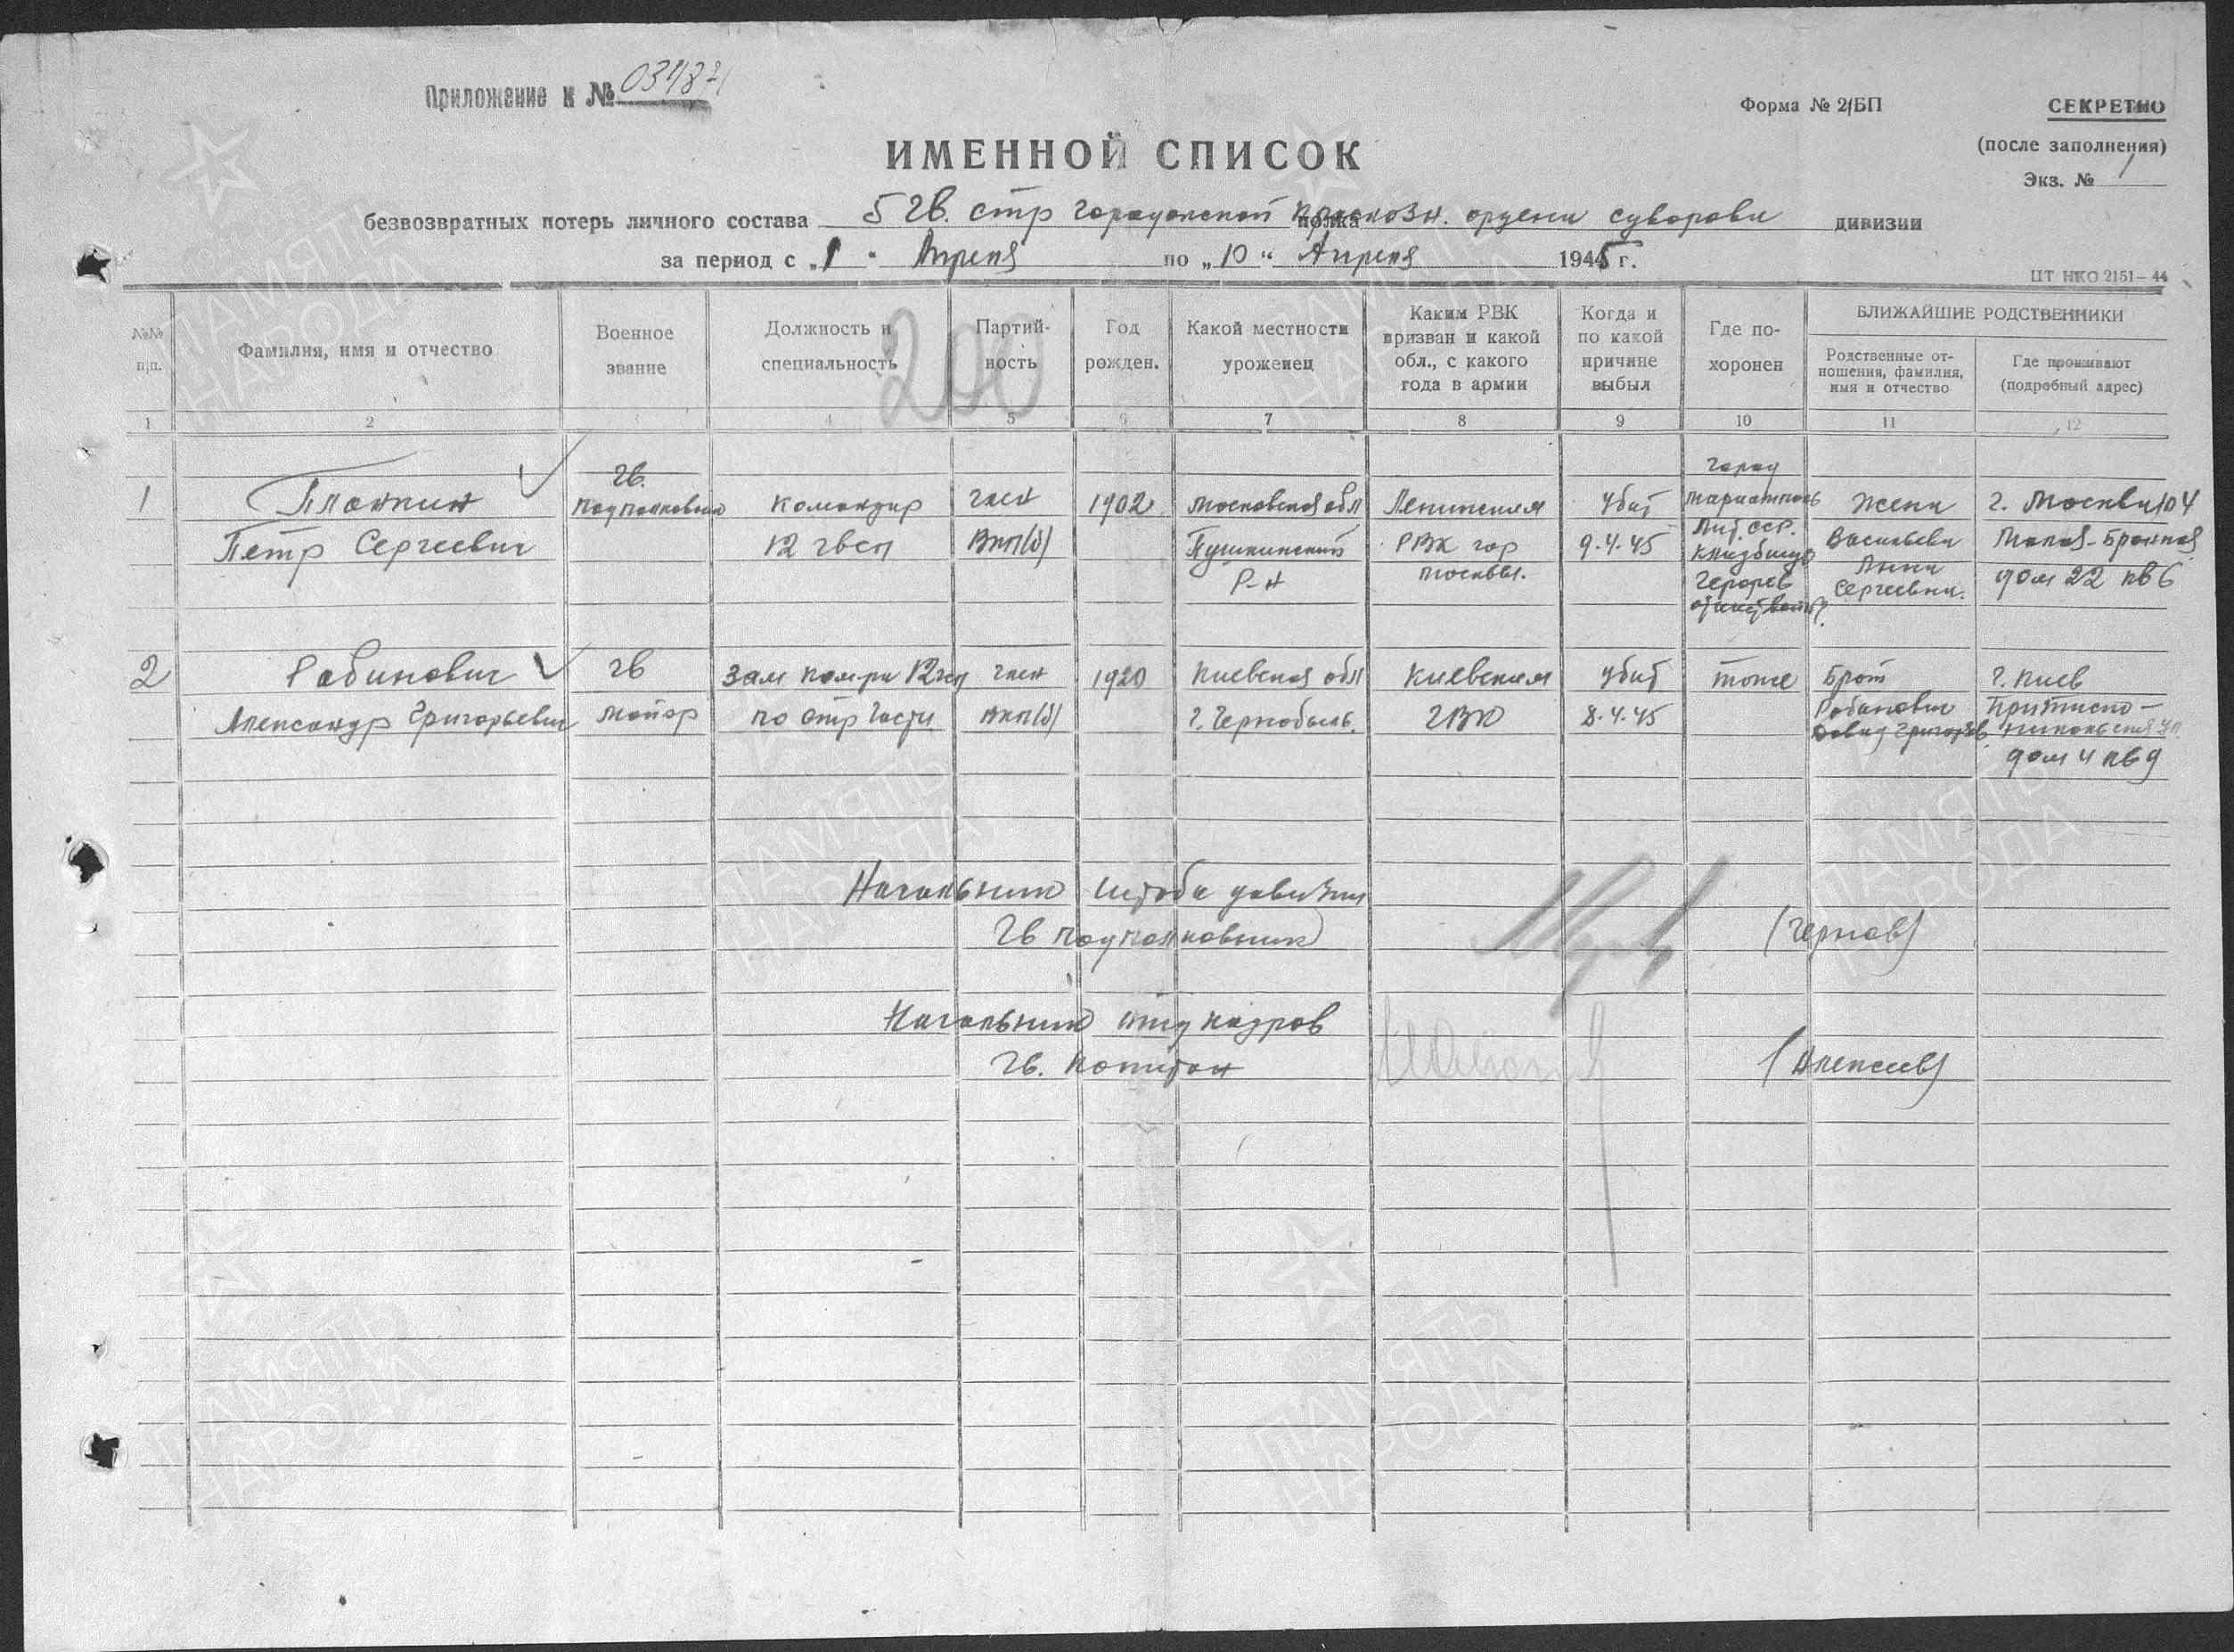 Приложение к № 034871
Форма № 2/БП
СЕКРЕТНО
(после заполнения)
Экз. № 1
ИМЕННОЙ СПИСОК
безвозвратных потерь личного состава 5 гв. стр Городокской Краснозн. ордена Суворова дивизии
полка
за период с „1" Апреля по „10" Апреля 1945 г.
ЦТ НКО 2151—44
200
№№ п/п.
Фамилия, имя и отчество
Военное звание
Должность и специальность
Партий-ность
Год рожден.
Какой местности уроженец
Каким РВК призван и какой обл., с какого года в армии
Когда и по какой причине выбыл
Где по-хоронен
БЛИЖАЙШИЕ РОДСТВЕННИКИ
Родственные от-ношения, фамилия, имя и отчество
Где проживают (подробный адрес)
1 2 3 4 5 6 7 8 9 10 11 12
гв. город
1 Подполковник Командир член 1902 Московская обл Ленинским убит Мариамполь Жена г. Москва 104
Петр Сергеевич 12 гвсп ВКП(б) Пушкинский РВК гор 9.4.45 Лит. ССР. Васильева Малая-Бронная
Р-н Москвы. кладбище Анна дом 22 кв 6
Героев Сергеевна.
отечествен
2 Рабинович гв Зам Ком-ра 12 гсп член 1920 Киевская обл Киевским убит тоже Брат г. Киев
Александр Григорьевич Майор по стр части ВКП(б) г. Чернобыль. ГВК 8.4.45 Рабинович Притиско-
Давид Григорьев. Никольская ул.
дом 4 кв 9
Начальник штаба дивизии
гв подполковник (Чернов)
Начальник отд кадров
гв. Капитан (Алексеев)
ПАМЯТЬ
НАРОДА